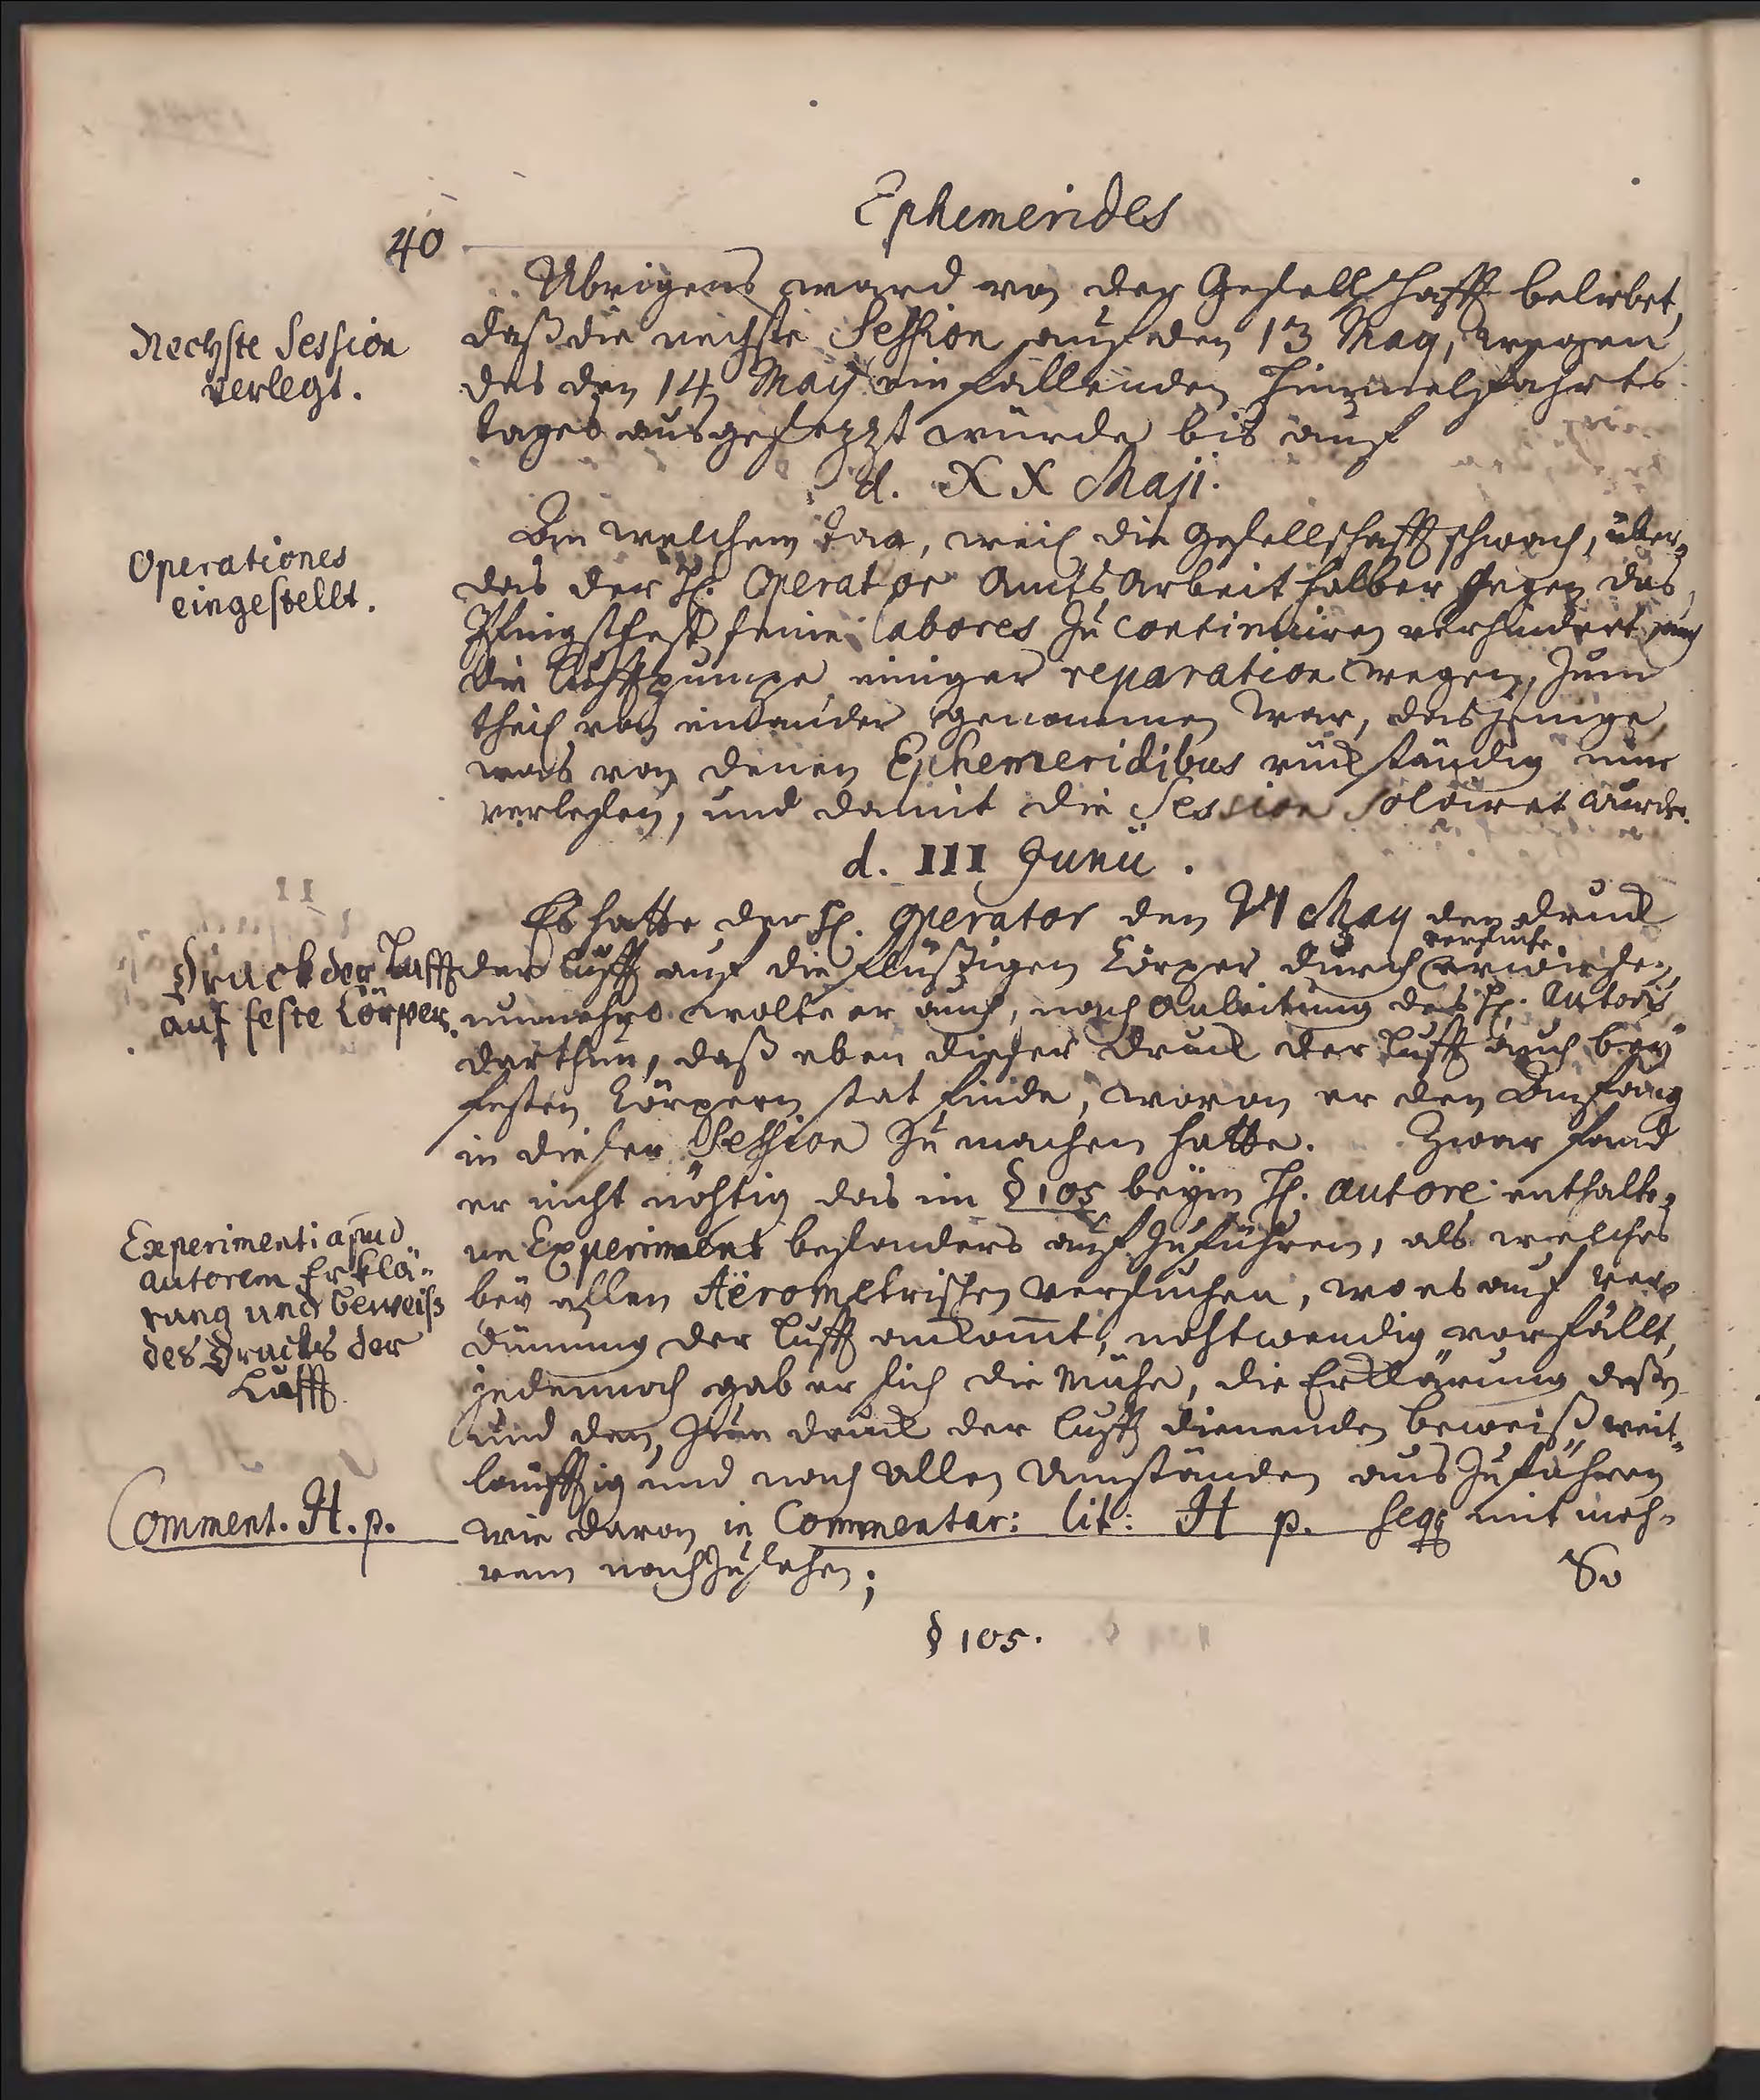 Ephemerides
40
Ubrigens ward von der Gesellschafft beliebet,
daß die nechste Session auf den 13 May, wegen
des den 14 May einfallenden Himmelfahrts
tages ausgesezzt würde bis auf
Nechste Session
verlegt.
d. XX Maji.
An welchem Tag, weil die Gesellschafft schwach, über„
das der H. Operator Amts Arbeit halber gegen das
Pfingstfest seine labores zu continuiren verhindert, auch
die Lufftpumpe einiger reparation wegen, zum
theil von einander genommen war, dasjenige
was von denen Ephemeridibus rückständig nur
verlesen, und damit die Session solviret wurde.
Operationes
eingestellt.
d. III Junii.
Es hatte der H. Operator den VI May den druck
der Lufft auf die flüßigen Cörper durch versuche erwiesen,
nunmehro wolte er auch, nach Anleitung des H. Autoris
darthun, daß eben dieser druck der Lufft auch bey
festen Cörpern stat finde, wovon er den Anfang
in dieser Session zu machen hatte. Zwar fand
er nicht nöhtig das im § 105 beym H. autore enthalte„
ne Experiment besonders auf zuführen, als welches
bey allen Aërometrischen Versuchen, wo es auf ver„
dünnung der Lufft ankomt, nohtwendig vorfällt,
jedennoch gab er sich die Mühe, die Erklärung deßen
und den, zum druck der Lufft dienenden beweiß weit„
läufftig und nach allen Umständen aus zuführen
wie davon in Commentar: lit: H p. seqq mit meh„
rem nachzusehen;
So
Druck der Lufft
auf feste Cörper.
Experimenti apud
autorem Erklä„
rung und beweiß
des Druckes der
Lufft
Comment. H. p.
§ 105.